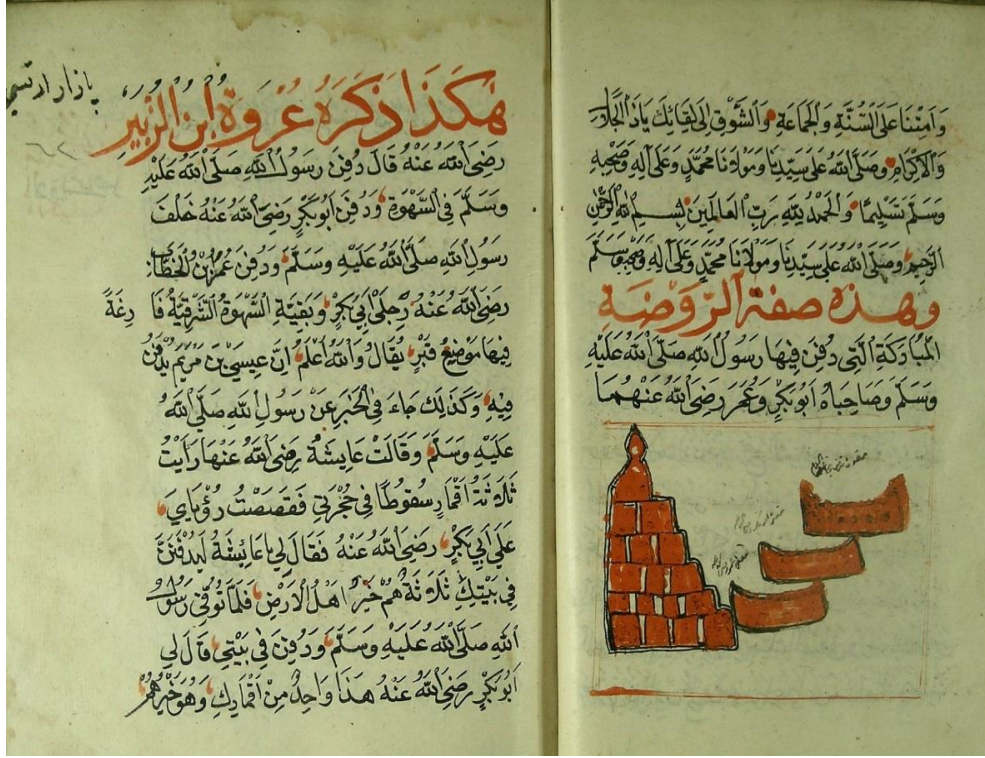 وَاَمِتْنَا عَلَى السُّنَّةِ وَالْجَمَاعَةِ وَالشَّوْقِ اِلٰى لِقَائِكَ يَاذَا الْجَلَالِ
وَالْاِكْرَامِ وَصَلَّى اللّٰهُ عَلٰى سَيِّدِنَا وَمَوْلَانَا مُحَمَّدٍ وَعَلٰى اٰلِهِ وَصَحْبِهِ
وَسَلَّمَ تَسْلِيمًا وَالْحَمْدُ لِلّٰهِ رَبِّ الْعَالَمِينَ بِسْمِ اللّٰهِ الرَّحْمٰنِ
الرَّحِيمِ وَصَلَّى اللّٰهُ عَلٰى سَيِّدِنَا وَمَوْلَانَا مُحَمَّدٍ وَعَلٰى اٰلِهِ وَصَحْبِهِ وَسَلَّمَ
وَهٰذِهِ صِفَةُ الرَّوْضَةِ
الْمُبَارَكَةِ الَّتِي دُفِنَ فِيهَا رَسُولُ اللّٰهِ صَلَّى اللّٰهُ عَلَيْهِ
وَسَلَّمَ وَصَاحِبَاهُ اَبُو بَكْرٍ وَعُمَرَ رَضِيَ اللّٰهُ عَنْهُمَا
هٰكَذَا ذَكَرَهُ عُرْوَةُ ابْنُ الزُّبَيْرِ
رَضِيَ اللّٰهُ عَنْهُ قَالَ دُفِنَ رَسُولُ اللّٰهِ صَلَّى اللّٰهُ عَلَيْهِ
وَسَلَّمَ فِي السَّهْوَةِ وَدُفِنَ اَبُو بَكْرٍ رَضِيَ اللّٰهُ عَنْهُ خَلْفَ
رَسُولِ اللّٰهِ صَلَّى اللّٰهُ عَلَيْهِ وَسَلَّمَ وَدُفِنَ عُمَرُ بْنُ الْخَطَّابِ
رَضِيَ اللّٰهُ عَنْهُ رِجْلَيْ اَبِي بَكْرٍ وَبَقِيَةِ السَّهْوَةُ الشَّرْقِيَّةُ فَارِغَةً
فِيهَا مَوْضِعُ قَبْرٍ يُقَالُ وَاللّٰهُ اَعْلَمُ اِنَّ عِيسَى بْنَ مَرْيَمَ يُدْفَنُ
فِيهِ وَكَذٰلِكَ جَاءَ فِي الْخَبَرِ عَنْ رَسُولِ اللّٰهِ صَلَّى اللّٰهُ
عَلَيْهِ وَسَلَّمَ وَقَالَتْ عَايِشَةُ رَضِيَ اللّٰهُ عَنْهَا رَاَيْتُ
ثَلَاثَةَ اَقْمَارٍ سُقُوطًا فِي حُجْرَتِي فَقَصَصْتُ رُؤْيَايَ
عَلٰى اَبِي بَكْرٍ رَضِيَ اللّٰهُ عَنْهُ فَقَالَ لِي يَا عَايِشَةُ لَيُدْفَنَنَّ
فِي بَيْتِكِ ثَلَاثَةٌ هُمْ خَيْرُ اَهْلِ الْاَرْضِ فَلَمَّا تُوُفِّيَ رَسُولُ
اللّٰهِ صَلَّى اللّٰهُ عَلَيْهِ وَسَلَّمَ وَدُفِنَ فِي بَيْتِي قَالَ لِي
اَبُو بَكْرٍ رَضِيَ اللّٰهُ عَنْهُ هٰذَا وَاحِدٌ مِنْ اَقْمَارِكِ وَهُوَ خَيْرُهُمْ